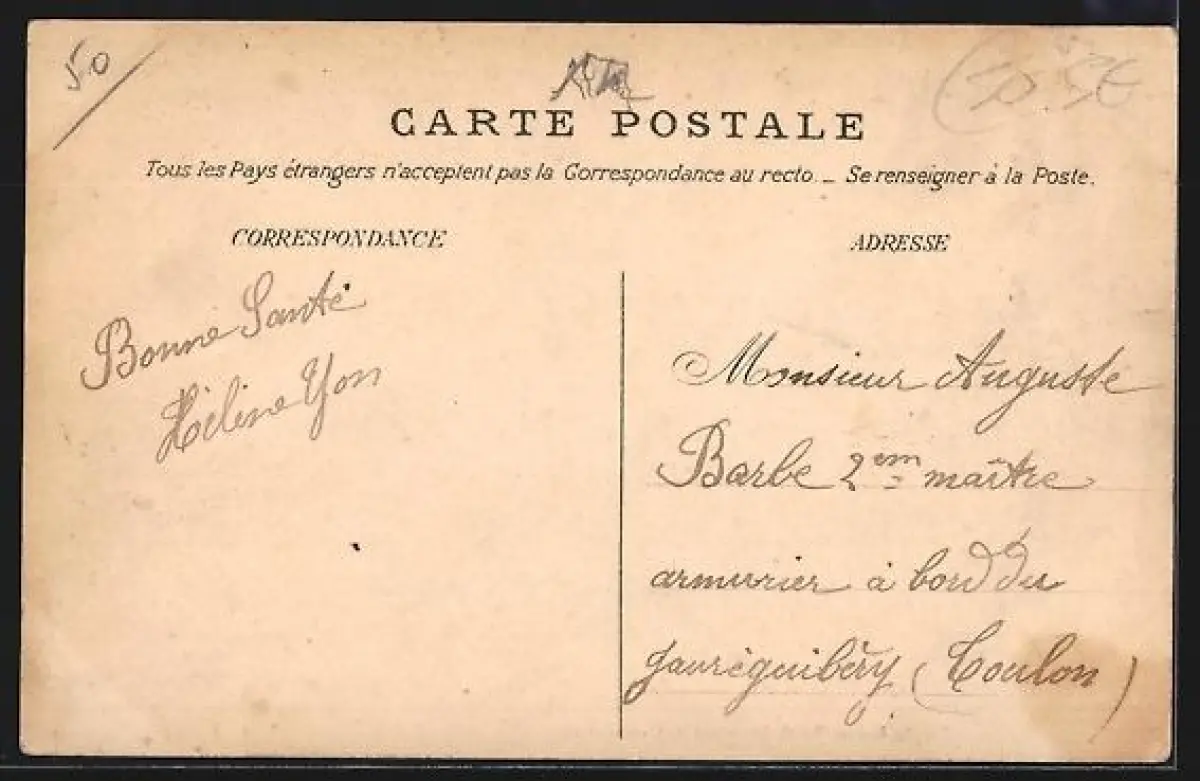 50
CARTE POSTALE
Tous les Pays étrangers n'acceptent pas la Correspondance au recto. — Se renseigner à la Poste.
CORRESPONDANCE
ADRESSE
Bonne Santé
Hélène Yon
Monsieur Auguste
Barbe 2em maître
armurier à bord du
Jauréguibéry (Toulon)